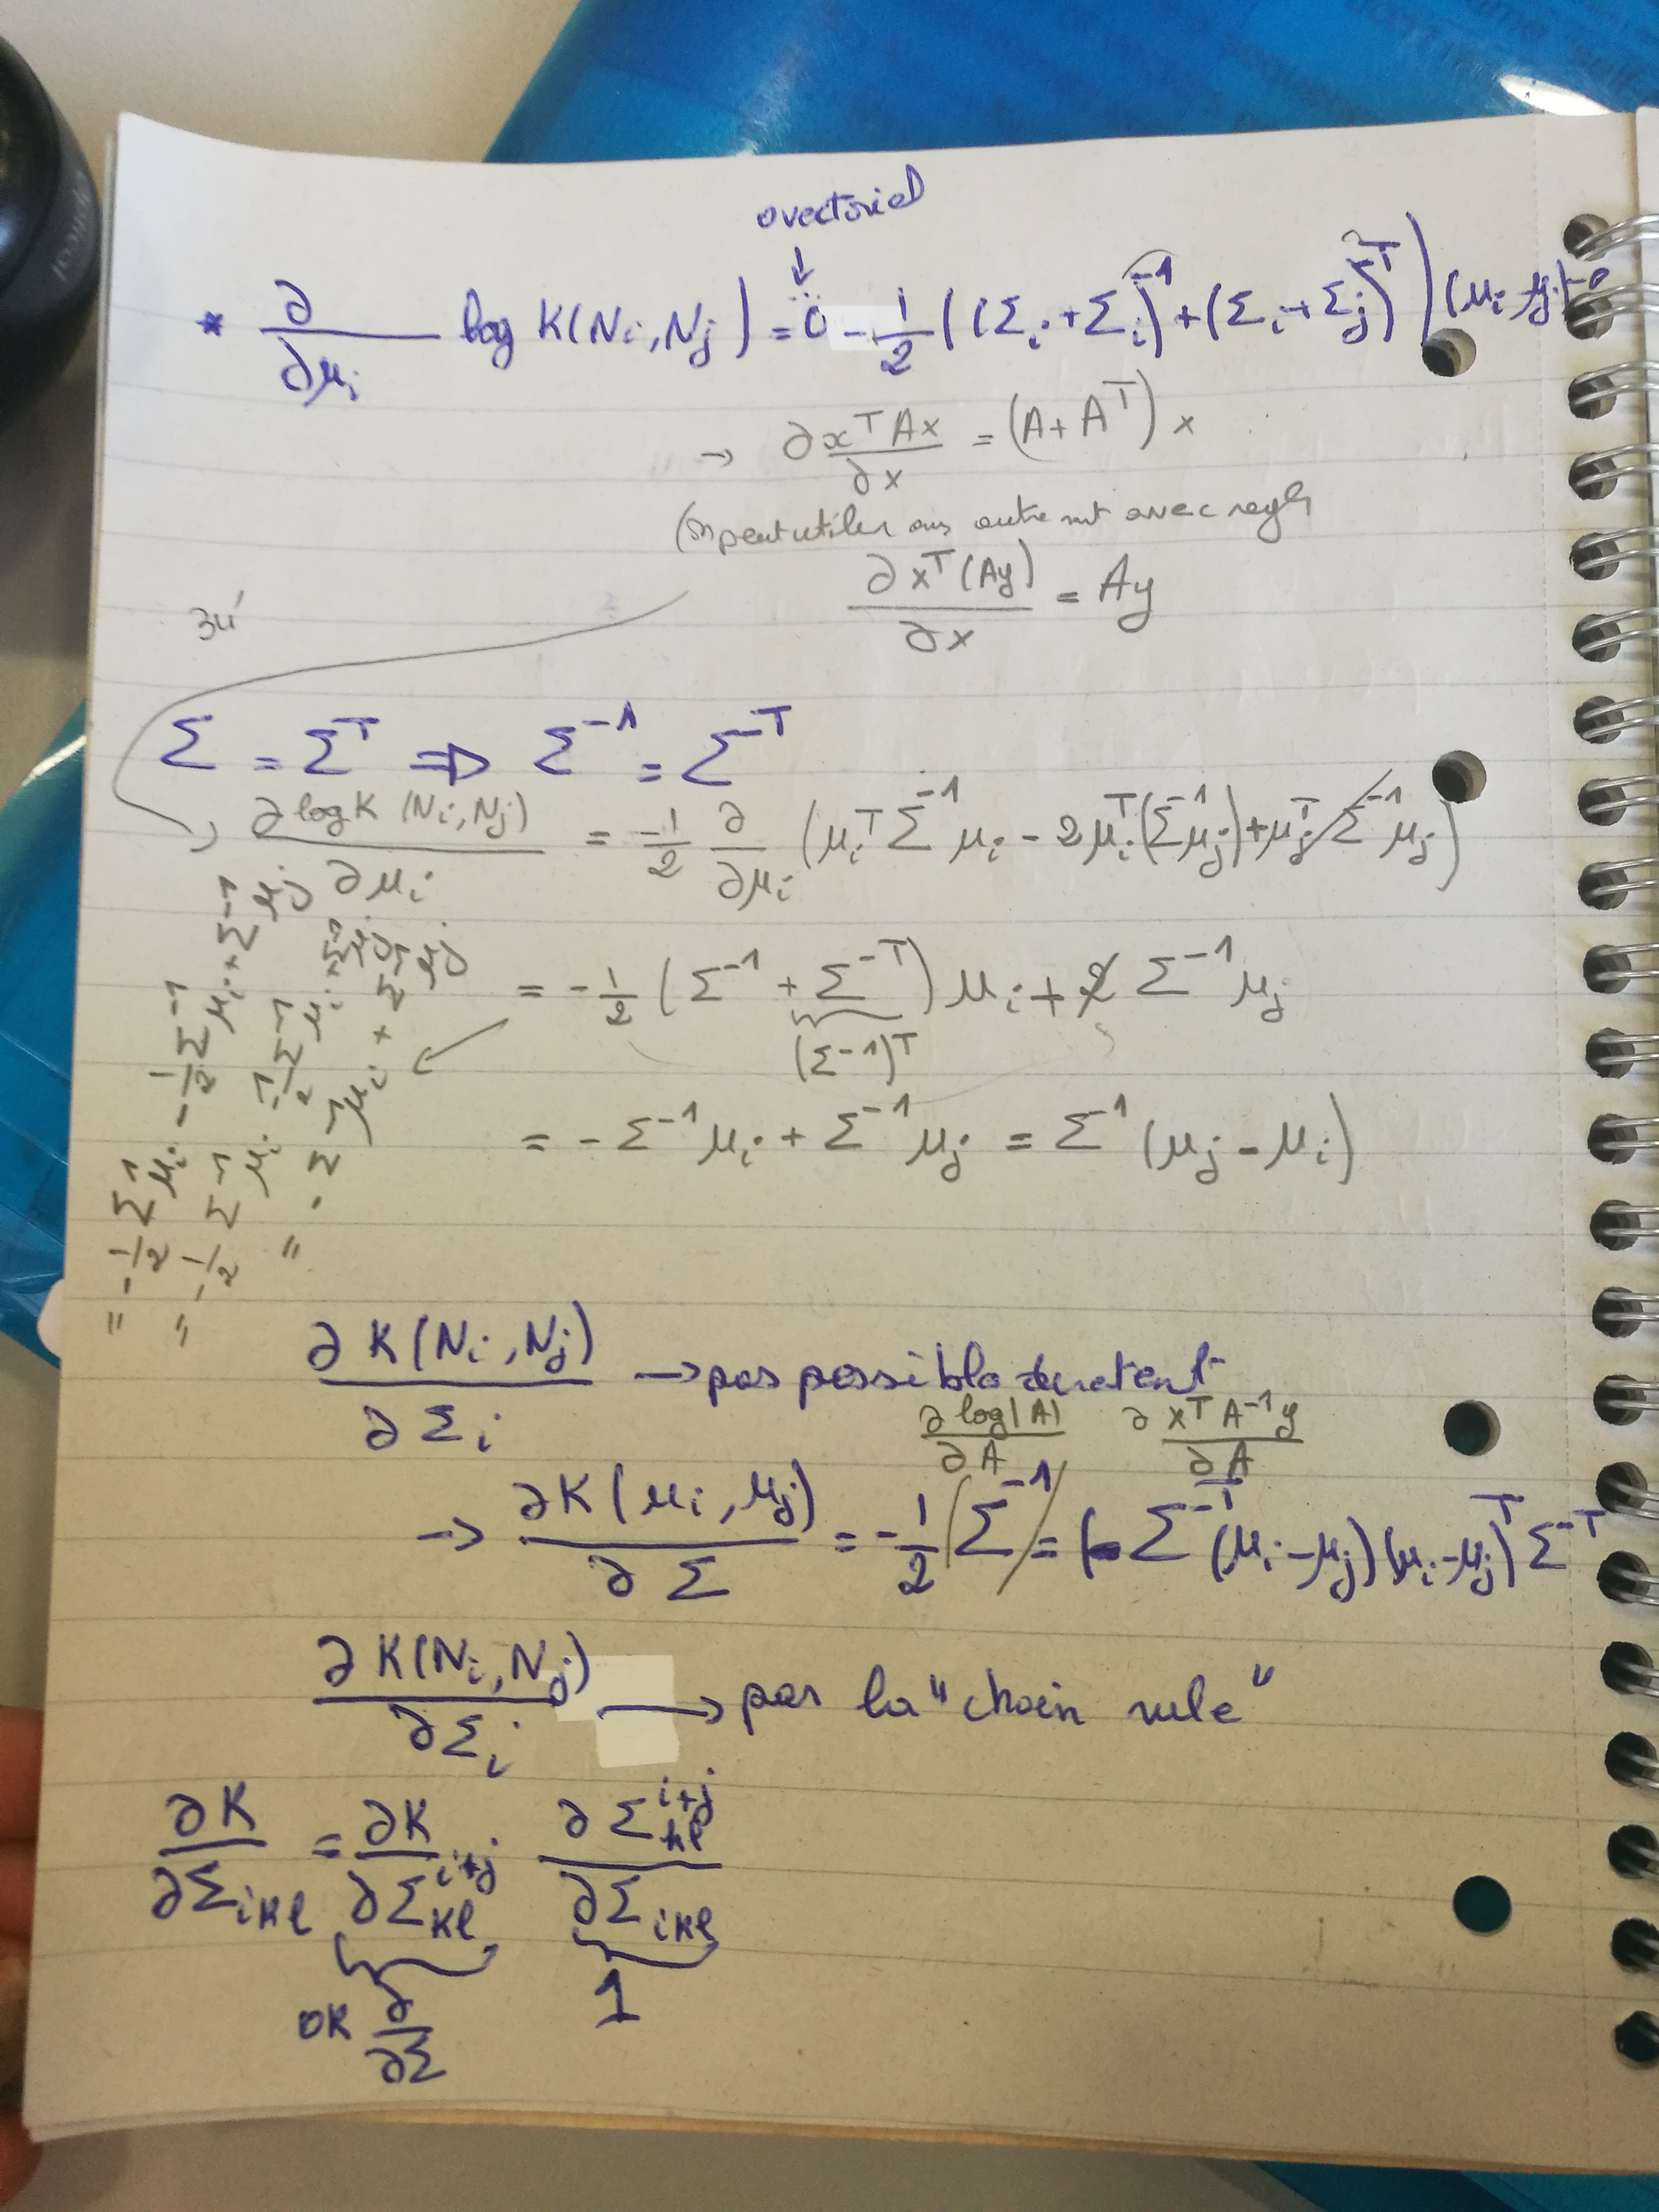 0 vectoriel
↓
* ∂/∂μi log K(Ni, Nj) = 0 - 1/2 ((Σi + Σi)^-1 + (Σi + Σj)^-T) (μi - μj)
→ ∂x^T Ax / ∂x = (A + A^T) x
(On peut utiliser autrement avec
∂ x^T (Ay) / ∂x = Ay
34'
Σ = Σ^T => Σ^-1 = Σ^-T
→ ∂ log K (Ni, Nj) / ∂μi = -1/2 ∂/∂μi (μi^T Σ^-1 μi - 2μi^T (Σ^-1 μj) + μj^T Σ^-1 μj)
= -1/2 (Σ^-1 + Σ^-T) μi + 2 Σ^-1 μj
(Σ^-1)^T
= -Σ^-1 μi + Σ^-1 μj = Σ^-1 (μj - μi)
= -1/2 Σ^-1 μi - 1/2 Σ^-1 μi + Σ^-1 μj
= -1/2 Σ^-1 μi - 1/2 Σ^-1 μi + Σ^-1 μj
= -Σ^-1 μi + Σ^-1 μj
∂ K(Ni, Nj) / ∂Σi → pas possible directent
∂ log|A| / ∂A ∂ x^T A^-1 y / ∂A
→ ∂K(μi, μj) / ∂Σ = -1/2 (Σ^-1) = (-Σ^-T (μi - μj)(μi - μj)^T Σ^-T
∂ K(Ni, Nj) / ∂Σi → par la "chain rule"
∂K / ∂Σikl = ∂K / ∂Σkl^i+j ∂Σkl^i+j / ∂Σikl
OK ∂/∂Σ 1